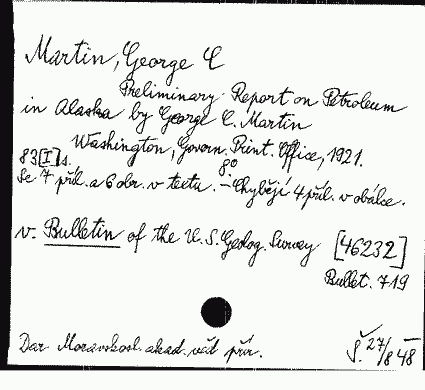 Martin, George C
Preliminary Report on Petroleum
in Alaska by George C. Martin
Washington, Govern. Print. Office, 1921.
83[I]s. 8°
Se 7 příl. a 6 obr. v textu. – Chybějí 4 příl. v obálce.
v. Bulletin of the U.S. Geolog. Survey [46232]
Bullet. 719
Dar Moravskosl. akad. věd přír. Š. 27/8 48